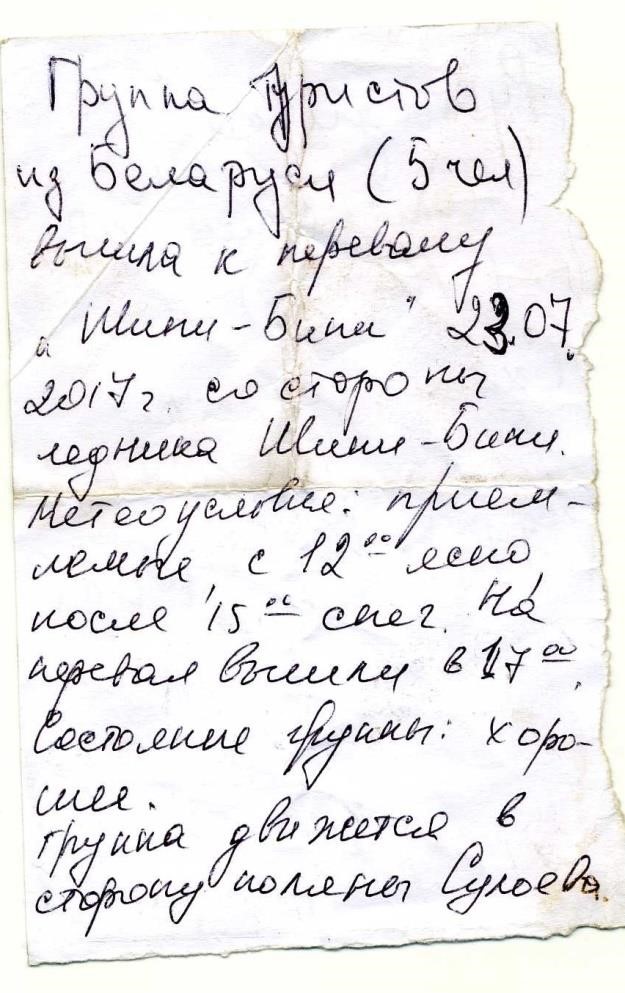 Группа туристов
из Беларуси (5 чел)
вышла к перевалу
„Шини-Бини" 23.07.
2017г. со стороны
ледника Шини-Бини.
Метеоусловия: прием-
лемые, с 12⁰⁰ ясно,
после 15⁰⁰ снег. На
перевал вышли в 17⁰⁰.
Состояние группы: хоро-
шее.
Группа движется в
сторону поляны Сулоева.